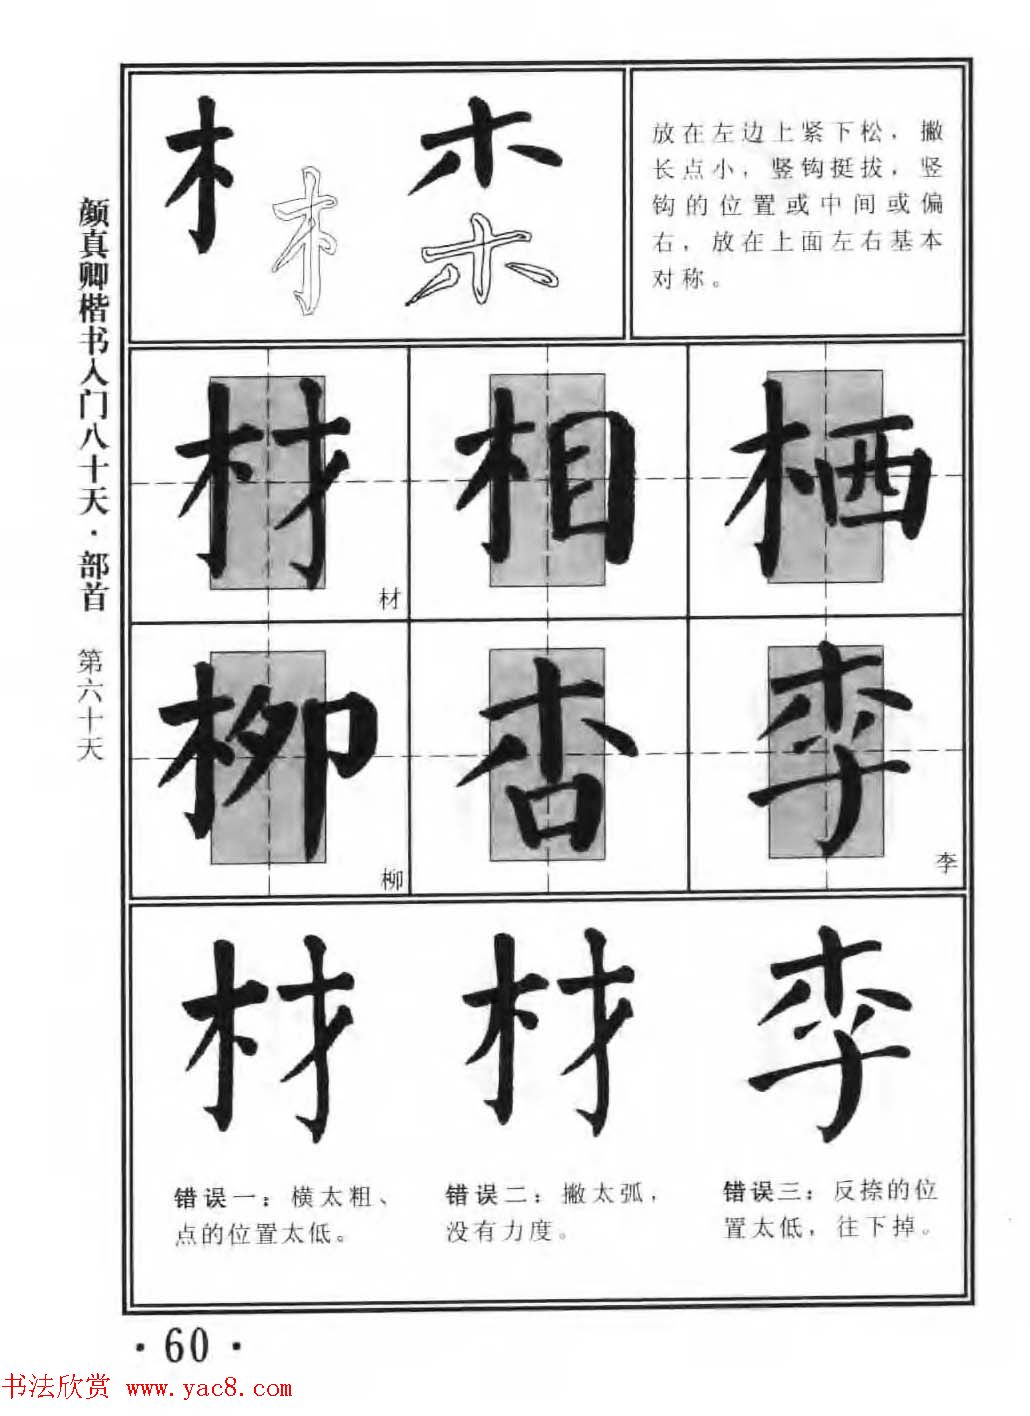 颜真卿楷书入门八十天·部首 第六十天
放在左边上紧下松，撇
长点小，竖钩挺拔，竖
钩的位置或中间或偏
右，放在上面左右基本
对称。
材 相 栖
材
柳 杏 李
柳 李
材 材 李
错误一：横太粗、
点的位置太低。
错误二：撇太弧，
没有力度。
错误三：反捺的位
置太低，往下掉。
·60·
书法欣赏 www.yac8.com